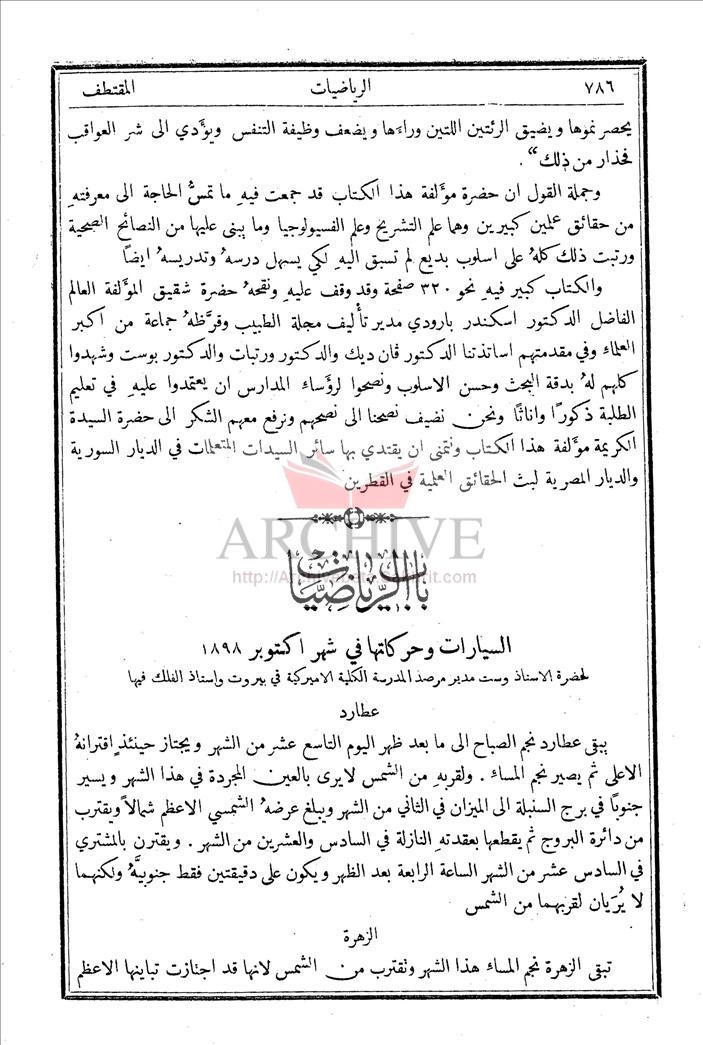 ٧٨٦ الرياضيات المقتطف
يحصر نموها ويضيق الرئتين اللتين وراءَها ويضعف وظيفة التنفس ويؤَدي الى شر العواقب
فحذار من ذلك" .
وجملة القول ان حضرة مؤَلفة هذا الكتاب قد جمعت فيهِ ما تمسُّ الحاجة الى معرفتهِ
من حقائق علمين كبيرين وهما علم التشريح وعلم الفسيولوجيا وما يبنى عليها من النصائح الصحية
ورتبت ذلك كلهُ على اسلوب بديع لم تسبق اليهِ لكي يسهل درسهُ وتدريسهُ ايضاً
والكتاب كبير فيهِ نحو ٣٢٠ صفحة وقد وقف عليهِ ونقحهُ حضرة شقيق المؤَلفة العالم
الفاضل الدكتور اسكندر بارودي مدير تأْليف مجلة الطبيب وقرَّظهُ جماعة من اكبر
العلماء وفي مقدمتهم اساتذتنا الدكتور ڤان ديك والدكتور ورتبات والدكتور بوست وشهدوا
كلهم لهُ بدقة البحث وحسن الاسلوب ونصحوا لرؤَساء المدارس ان يعتمدوا عليهِ في تعليم
الطلبة ذكورًا واناثًا ونحن نضيف نصحنا الى نصحهم ونرفع معهم الشكر الى حضرة السيدة
الكريمة مؤَلفة هذا الكتاب ونتمنى ان يقتدي بها سائر السيدات المتعلمات في الديار السورية
والديار المصرية لبث الحقائق العلمية في القطرين
ARCHIVE
باب الرياضيات
السيارات وحركاتها في شهر اكتوبر ١٨٩٨
لحضرة الاستاذ وست مدير مرصد المدرسة الكلية الاميركية في بيروت واستاذ الفلك فيها
عطارد
يبقى عطارد نجم الصباح الى ما بعد ظهر اليوم التاسع عشر من الشهر ويجتاز حينئذٍ اقترانهُ
الاعلى ثم يصير نجم المساء . ولقربهِ من الشمس لايرى بالعين المجردة في هذا الشهر ويسير
جنوبًا في برج السنبلة الى الميزان في الثاني من الشهر ويبلغ عرضهُ الشمسي الاعظم شمالاً ويقترب
من دائرة البروج ثم يقطعها بعقدتهِ النازلة في السادس والعشرين من الشهر . ويقترن بالمشتري
في السادس عشر من الشهر الساعة الرابعة بعد الظهر ويكون على دقيقتين فقط جنوبيَّهُ ولكنهما
لا يُرَيان لقربهما من الشمس
الزهرة
تبقى الزهرة نجم المساء هذا الشهر وتقترب من الشمس لانها قد اجتازت تباينها الاعظم